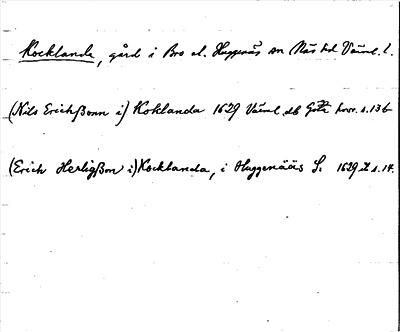 Kocklanda, gård i Bro el. Huggenäs sn Näs hd Värml. l.
(Nils Erichßonn i) Koklanda 1629 Värml. db Göta hovr. s. 136
(Erich Herligßon i) Kocklanda, i Huggenääs S. 1629 s. 14.